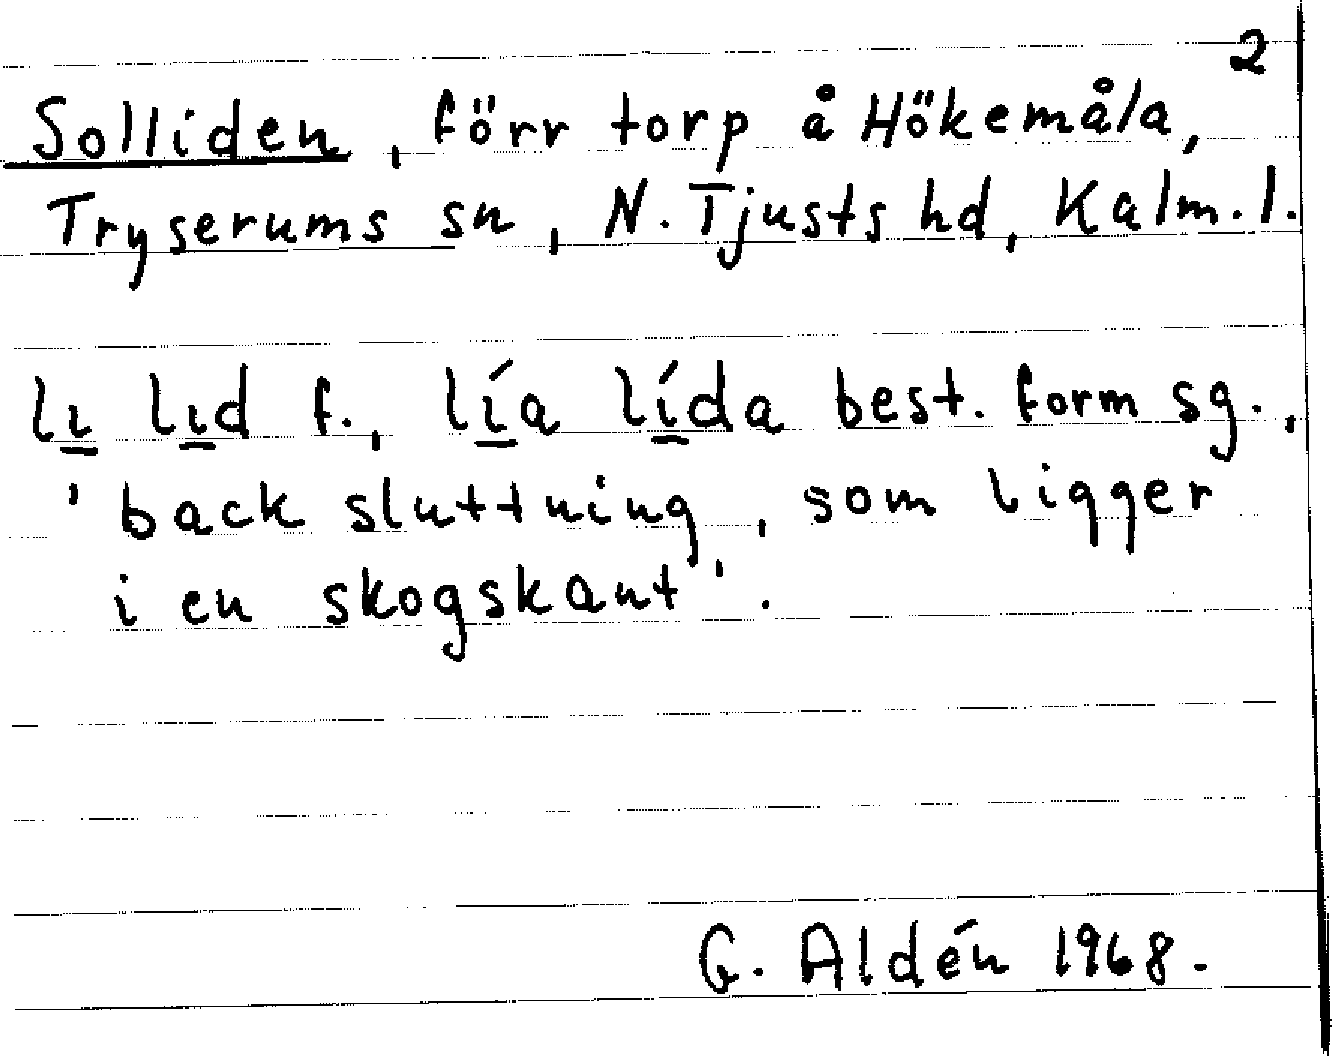 2
Solliden, förr torp å Hökemåla,
Tryserums sn, N. Tjusts hd, Kalm. l.
lı̲ lı̲d f., lı̲́a lı̲́da best. form sg.,
'back sluttning, som ligger
i en skogskant'.
G. Aldén 1968.